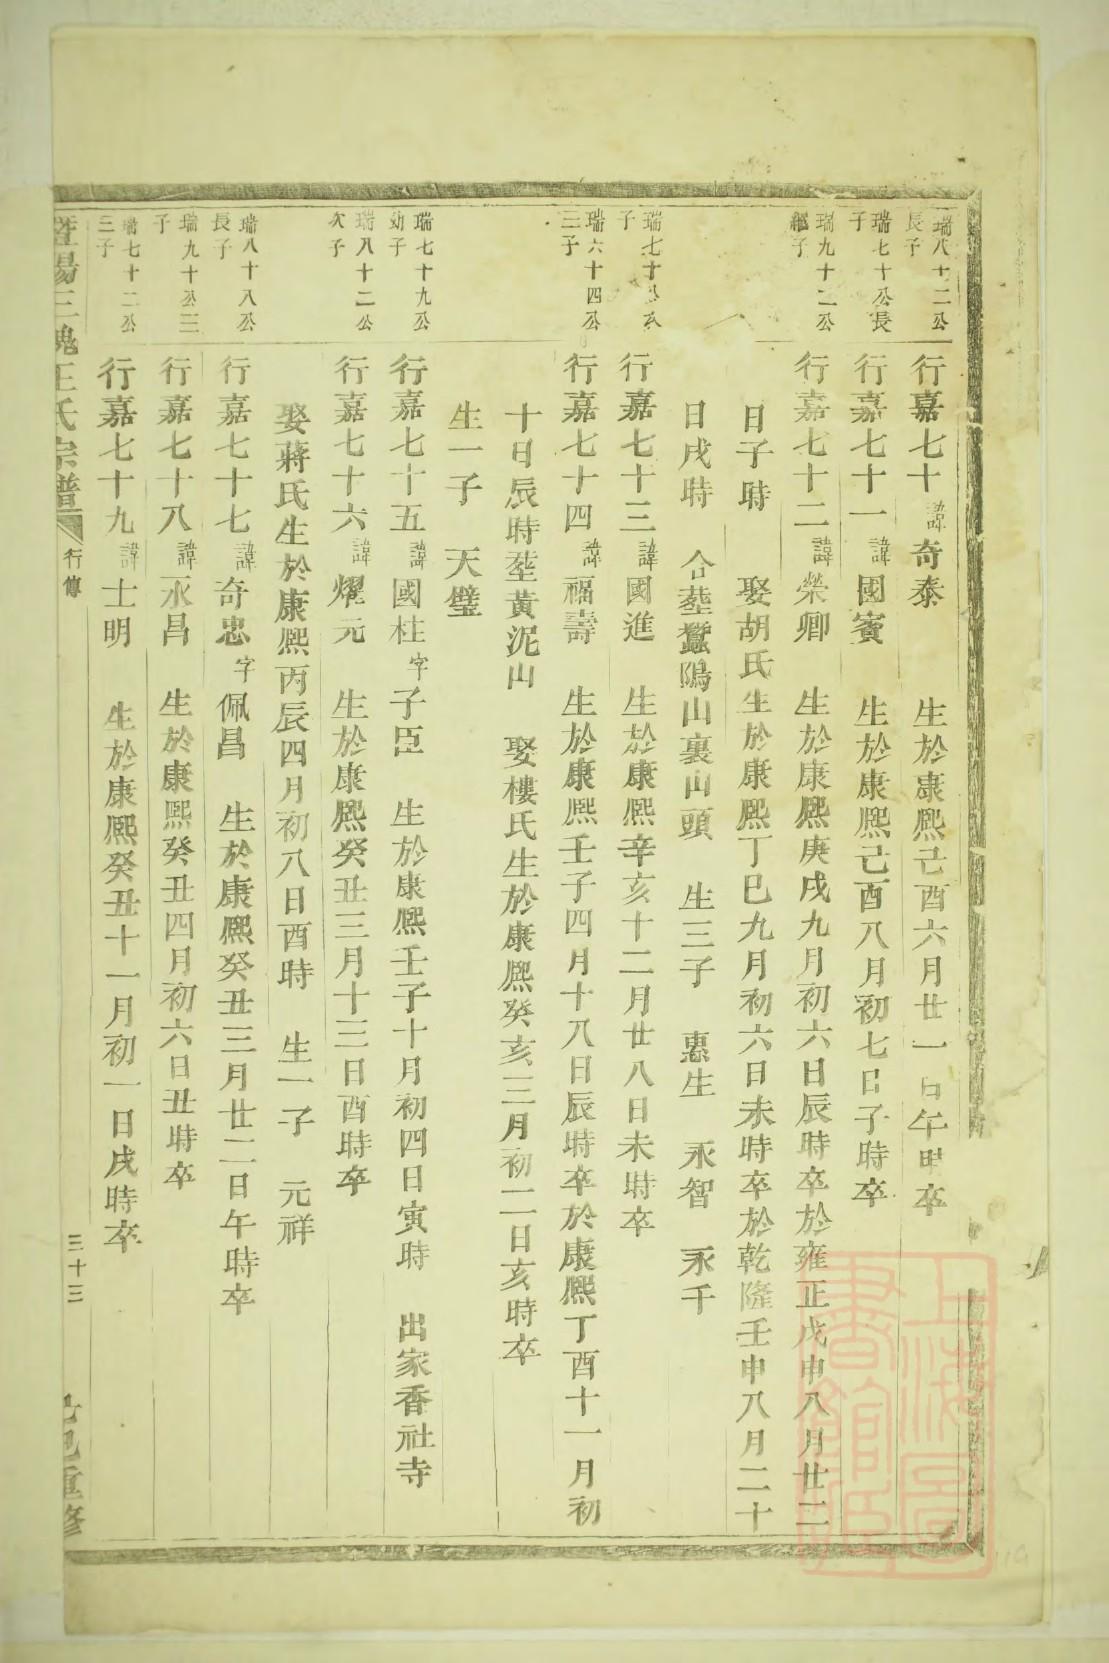 瑞八十二公
長子
行嘉七十 諱奇泰 生於康熙己酉六月廿一日午時卒
瑞七十公長
子
行嘉七十一 諱國賓 生於康熙己酉八月初七日子時卒
瑞九十二公
繼子
行嘉七十二 諱榮卿 生於康熙庚戌九月初六日辰時卒於雍正戊申八月廿二
日子時 娶胡氏生於康熙丁巳九月初六日未時卒於乾隆壬申八月二十
日戌時 合塟蠶隖山裏山頭 生三子 惠生 永智 永千
瑞七十公次
子
行嘉七十三 諱國進 生於康熙辛亥十二月廿八日未時卒
瑞六十四公
三子
行嘉七十四 諱福壽 生於康熙壬子四月十八日辰時卒於康熙丁酉十一月初
十日辰時塟黃泥山 娶樓氏生於康熙癸亥三月初二日亥時卒
生一子 天璧
瑞七十九公
幼子
行嘉七十五 諱國柱 字子臣 生於康熙壬子十月初四日寅時 出家香社寺
瑞八十二公
次子
行嘉七十六 諱耀元 生於康熙癸丑三月十三日酉時卒
娶蔣氏生於康熙丙辰四月初八日酉時 生一子 元祥
瑞八十八公
長子
行嘉七十七 諱奇忠 字佩昌 生於康熙癸丑三月廿二日午時卒
瑞九十公三
子
行嘉七十八 諱永昌 生於康熙癸丑四月初六日丑時卒
瑞七十二公
三子
行嘉七十九 諱士明 生於康熙癸丑十一月初一日戌時卒
暨陽三槐王氏宗譜 行傳 三十三 重修
上海圖
書館藏